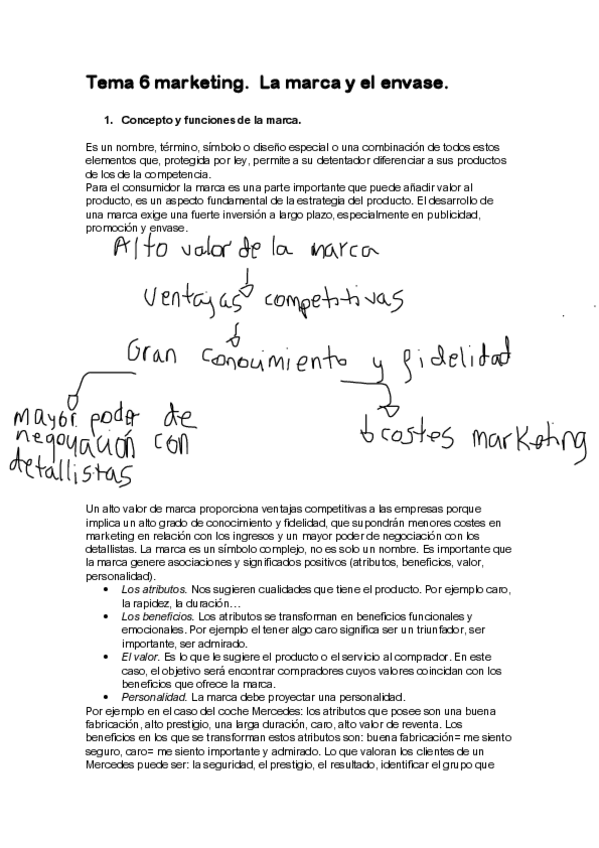 Tema 6 marketing. La marca y el envase.
1. Concepto y funciones de la marca.
Es un nombre, término, símbolo o diseño especial o una combinación de todos estos
elementos que, protegida por ley, permite a su detentador diferenciar a sus productos
de los de la competencia.
Para el consumidor la marca es una parte importante que puede añadir valor al
producto, es un aspecto fundamental de la estrategia del producto. El desarrollo de
una marca exige una fuerte inversión a largo plazo, especialmente en publicidad,
promoción y envase.
Alto valor de la marca
ventajas competitivas
Gran conocimiento y fidelidad
mayor poder de
negoyación con
detallistas
costes marketing
Un alto valor de marca proporciona ventajas competitivas a las empresas porque
implica un alto grado de conocimiento y fidelidad, que supondrán menores costes en
marketing en relación con los ingresos y un mayor poder de negociación con los
detallistas. La marca es un símbolo complejo, no es solo un nombre. Es importante que
la marca genere asociaciones y significados positivos (atributos, beneficios, valor,
personalidad).
• Los atributos. Nos sugieren cualidades que tiene el producto. Por ejemplo caro,
la rapidez, la duración…
• Los beneficios. Los atributos se transforman en beneficios funcionales y
emocionales. Por ejemplo el tener algo caro significa ser un triunfador, ser
importante, ser admirado.
• El valor. Es lo que le sugiere el producto o el servicio al comprador. En este
caso, el objetivo será encontrar compradores cuyos valores coincidan con los
beneficios que ofrece la marca.
• Personalidad. La marca debe proyectar una personalidad.
Por ejemplo en el caso del coche Mercedes: los atributos que posee son una buena
fabricación, alto prestigio, una larga duración, caro, alto valor de reventa. Los
beneficios en los que se transforman estos atributos son: buena fabricación= me siento
seguro, caro= me siento importante y admirado. Lo que valoran los clientes de un
Mercedes puede ser: la seguridad, el prestigio, el resultado, identificar el grupo que